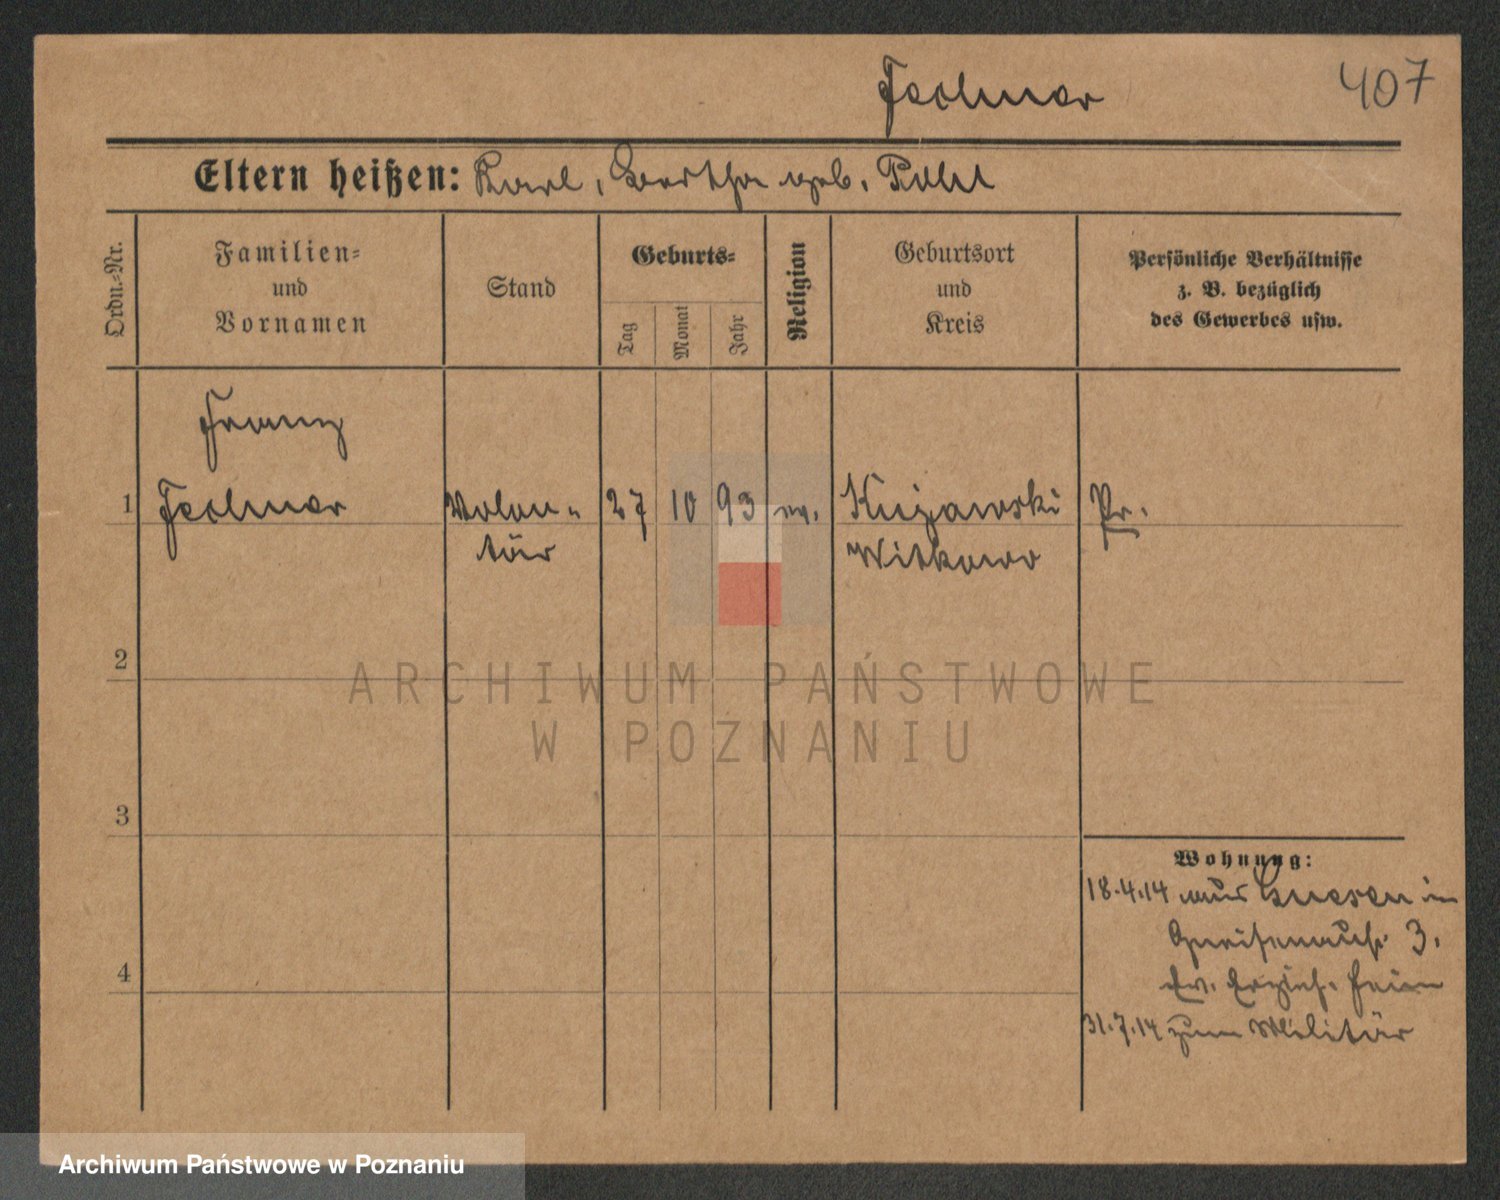 Fechner
407
Eltern heißen: Karl, Bertha geb. Pohl
Ordn.-Nr.
Familien-
und
Vornamen
Stand
Geburts-
Tag
Monat
Jahr
Religion
Geburtsort
und
Kreis
Persönliche Verhältnisse
z. B. bezüglich
des Gewerbes usw.
Franz
1 Fechner Volon- 27 10 93 ev. Kujawski Pr.
tär Witkowo
2
3
4
Wohnung:
18.4.14 aus Gnesen in
3.
Ev. Erzieh. Heim
31.7.14 zum Militär
ARCHIWUM PAŃSTWOWE
W POZNANIU
Archiwum Państwowe w Poznaniu